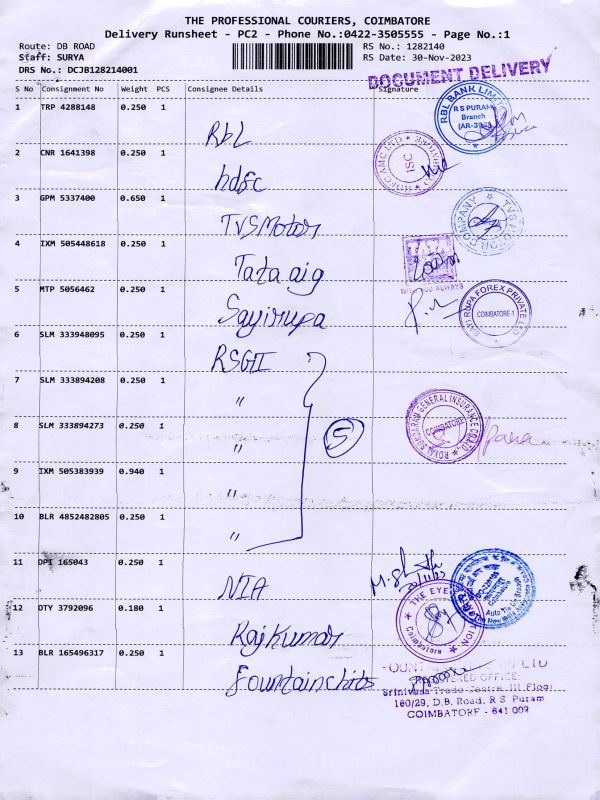 THE PROFESSIONAL COURIERS, COIMBATORE
Delivery Runsheet - PC2 - Phone No.:0422-3505555 - Page No.:1
Route: DB ROAD
Staff: SURYA
DRS No.: DCJB128214001
RS No.: 1282140
RS Date: 30-Nov-2023
DOCUMENT DELIVERY
S No Consignment No Weight PCS Consignee Details Signature
1 TRP 4288148 0.250 1 Rbl
RBL BANK LIMITED
R S PURAM
Branch
2 CNR 1641398 0.250 1 hdfc
HDFC AMC LTD
ISC
COIMBATORE
3 GPM 5337400 0.650 1 TVSMotor
TVS MOTOR COMPANY
4 IXM 505448618 0.250 1 Tata aig
WITH YOU ALWAYS
5 MTP 5056462 0.250 1 Sayirupa
SAYI RUPA FOREX PRIVATE LTD
COIMBATORE-1
6 SLM 333948095 0.250 1 RSGI
7 SLM 333894208 0.250 1 "
8 SLM 333894273 0.250 1 "
5
ROYAL SUNDARAM GENERAL INSURANCE CO. LTD.
COIMBATORE
9 IXM 505383939 0.940 1 "
10 BLR 4852482805 0.250 1 "
11 DPI 165043 0.250 1 NIA
12 DTY 3792096 0.180 1 Rajkumar
THE EYE FOUNDATION
Coimbatore
13 BLR 165496317 0.250 1 Fountainchits
Srinivasa Trade Centre, III Floor
160/29, D.B. Road, R S Puram
COIMBATORE - 641 002